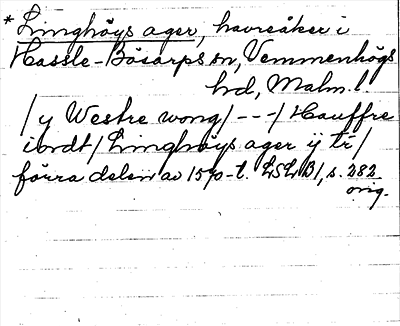 * Linghöys ager, havreåker i
Hassle-Bösarps sn, Vemmenhögs
hd, Malm. l.
/y Westre wong/ - - -/ Hauffre
iordt/ Linghöys ager ÿ tr/
förra delen av 1570-t. LSLB1, s. 282
orig.